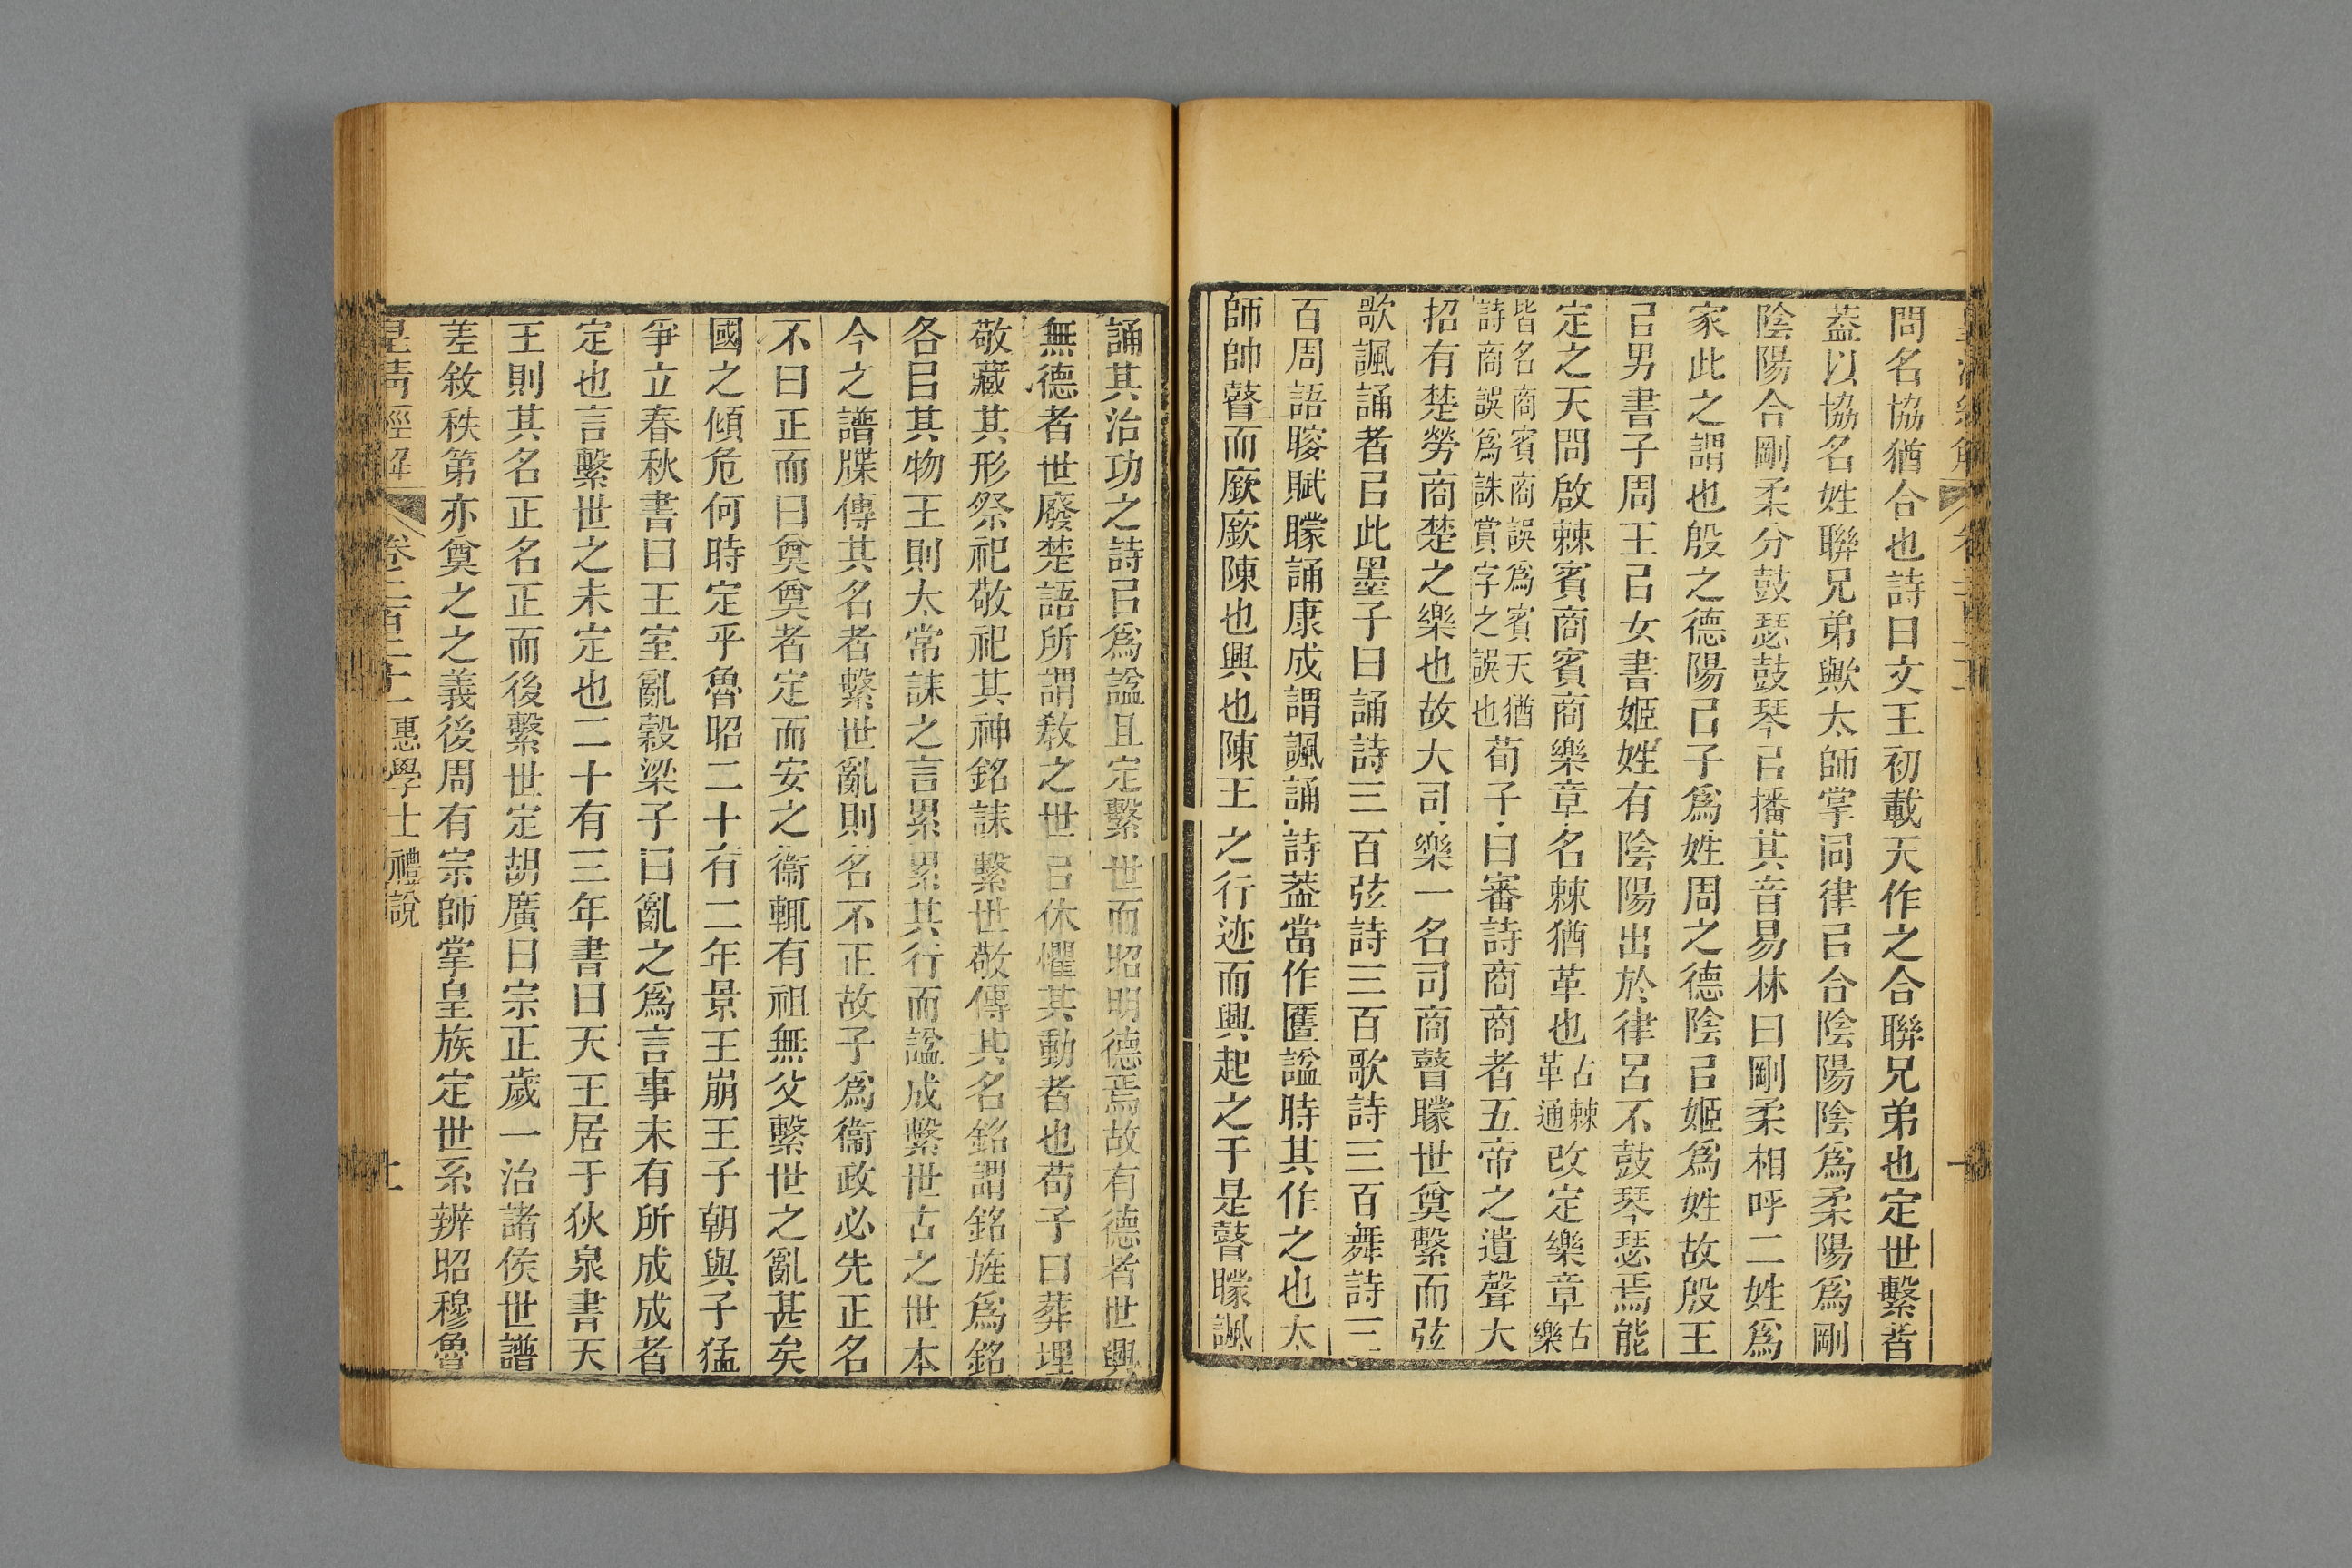 問名協猶合也詩曰文王初載天作之合聯兄弟也定世繫者
蓋以協名姓聯兄弟歟太師掌同律㠯合陰陽陰爲柔陽爲剛
陰陽合剛柔分鼓瑟鼓琴㠯播其音易林曰剛柔相呼二姓爲
家此之謂也殷之德陽㠯子爲姓周之德陰㠯姬爲姓故殷王
㠯男書子周王㠯女書姬姓有陰陽出於律呂不鼓琴瑟焉能
定之天問啟棘賓商賓商樂章名棘猶革也古棘革通改定樂章古樂
皆名商賓商誤爲賓天猶詩商誤爲誅賞字之誤也荀子曰審詩商商者五帝之遺聲大
招有楚勞商楚之樂也故大司樂一名司商瞽矇世奠繫而弦
歌諷誦者㠯此墨子曰誦詩三百弦詩三百歌詩三百舞詩三
百周語䐂賦矇誦康成謂諷誦詩蓋當作匶謚時其作之也太
師帥瞽而廞廞陳也興也陳王之行迹而興起之于是瞽矇諷
誦其治功之詩㠯爲謚且定繫世而昭明德焉故有德者世興
無德者世廢楚語所謂敎之世㠯休懼其動者也荀子曰葬埋
敬藏其形祭祀敬祀其神銘誄繫世敬傳其名銘謂銘旌爲銘
各㠯其物王則太常誄之言累累其行而謚成繫世古之世本
今之譜牒傳其名者繫世亂則名不正故子爲衞政必先正名
不曰正而曰奠奠者定而安之衞輒有祖無父繫世之亂甚矣
國之傾危何時定乎魯昭二十有二年景王崩王子朝與子猛
爭立春秋書曰王室亂穀梁子曰亂之爲言事未有所成成者
定也言繫世之未定也二十有三年書曰天王居于狄泉書天
王則其名正名正而後繫世定胡廣曰宗正歲一治諸侯世譜
差敘秩第亦奠之之義後周有宗師掌皇族定世系辨昭穆魯
皇清經解 卷二百二十一 惠學士禮說